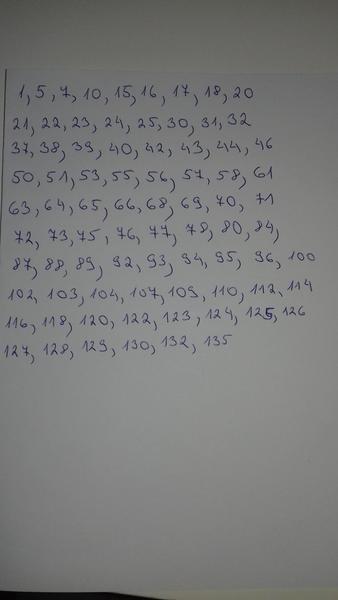 1, 5, 7, 10, 15, 16, 17, 18, 20
21, 22, 23, 24, 25, 30, 31, 32
37, 38, 39, 40, 42, 43, 44, 46
50, 51, 53, 55, 56, 57, 58, 61
63, 64, 65, 66, 68, 69, 70, 71
72, 73, 75, 76, 77, 78, 80, 84,
87, 88, 89, 92, 93, 94, 95, 96, 100
102, 103, 104, 107, 109, 110, 112, 114
116, 118, 120, 122, 123, 124, 125, 126
127, 128, 129, 130, 132, 135